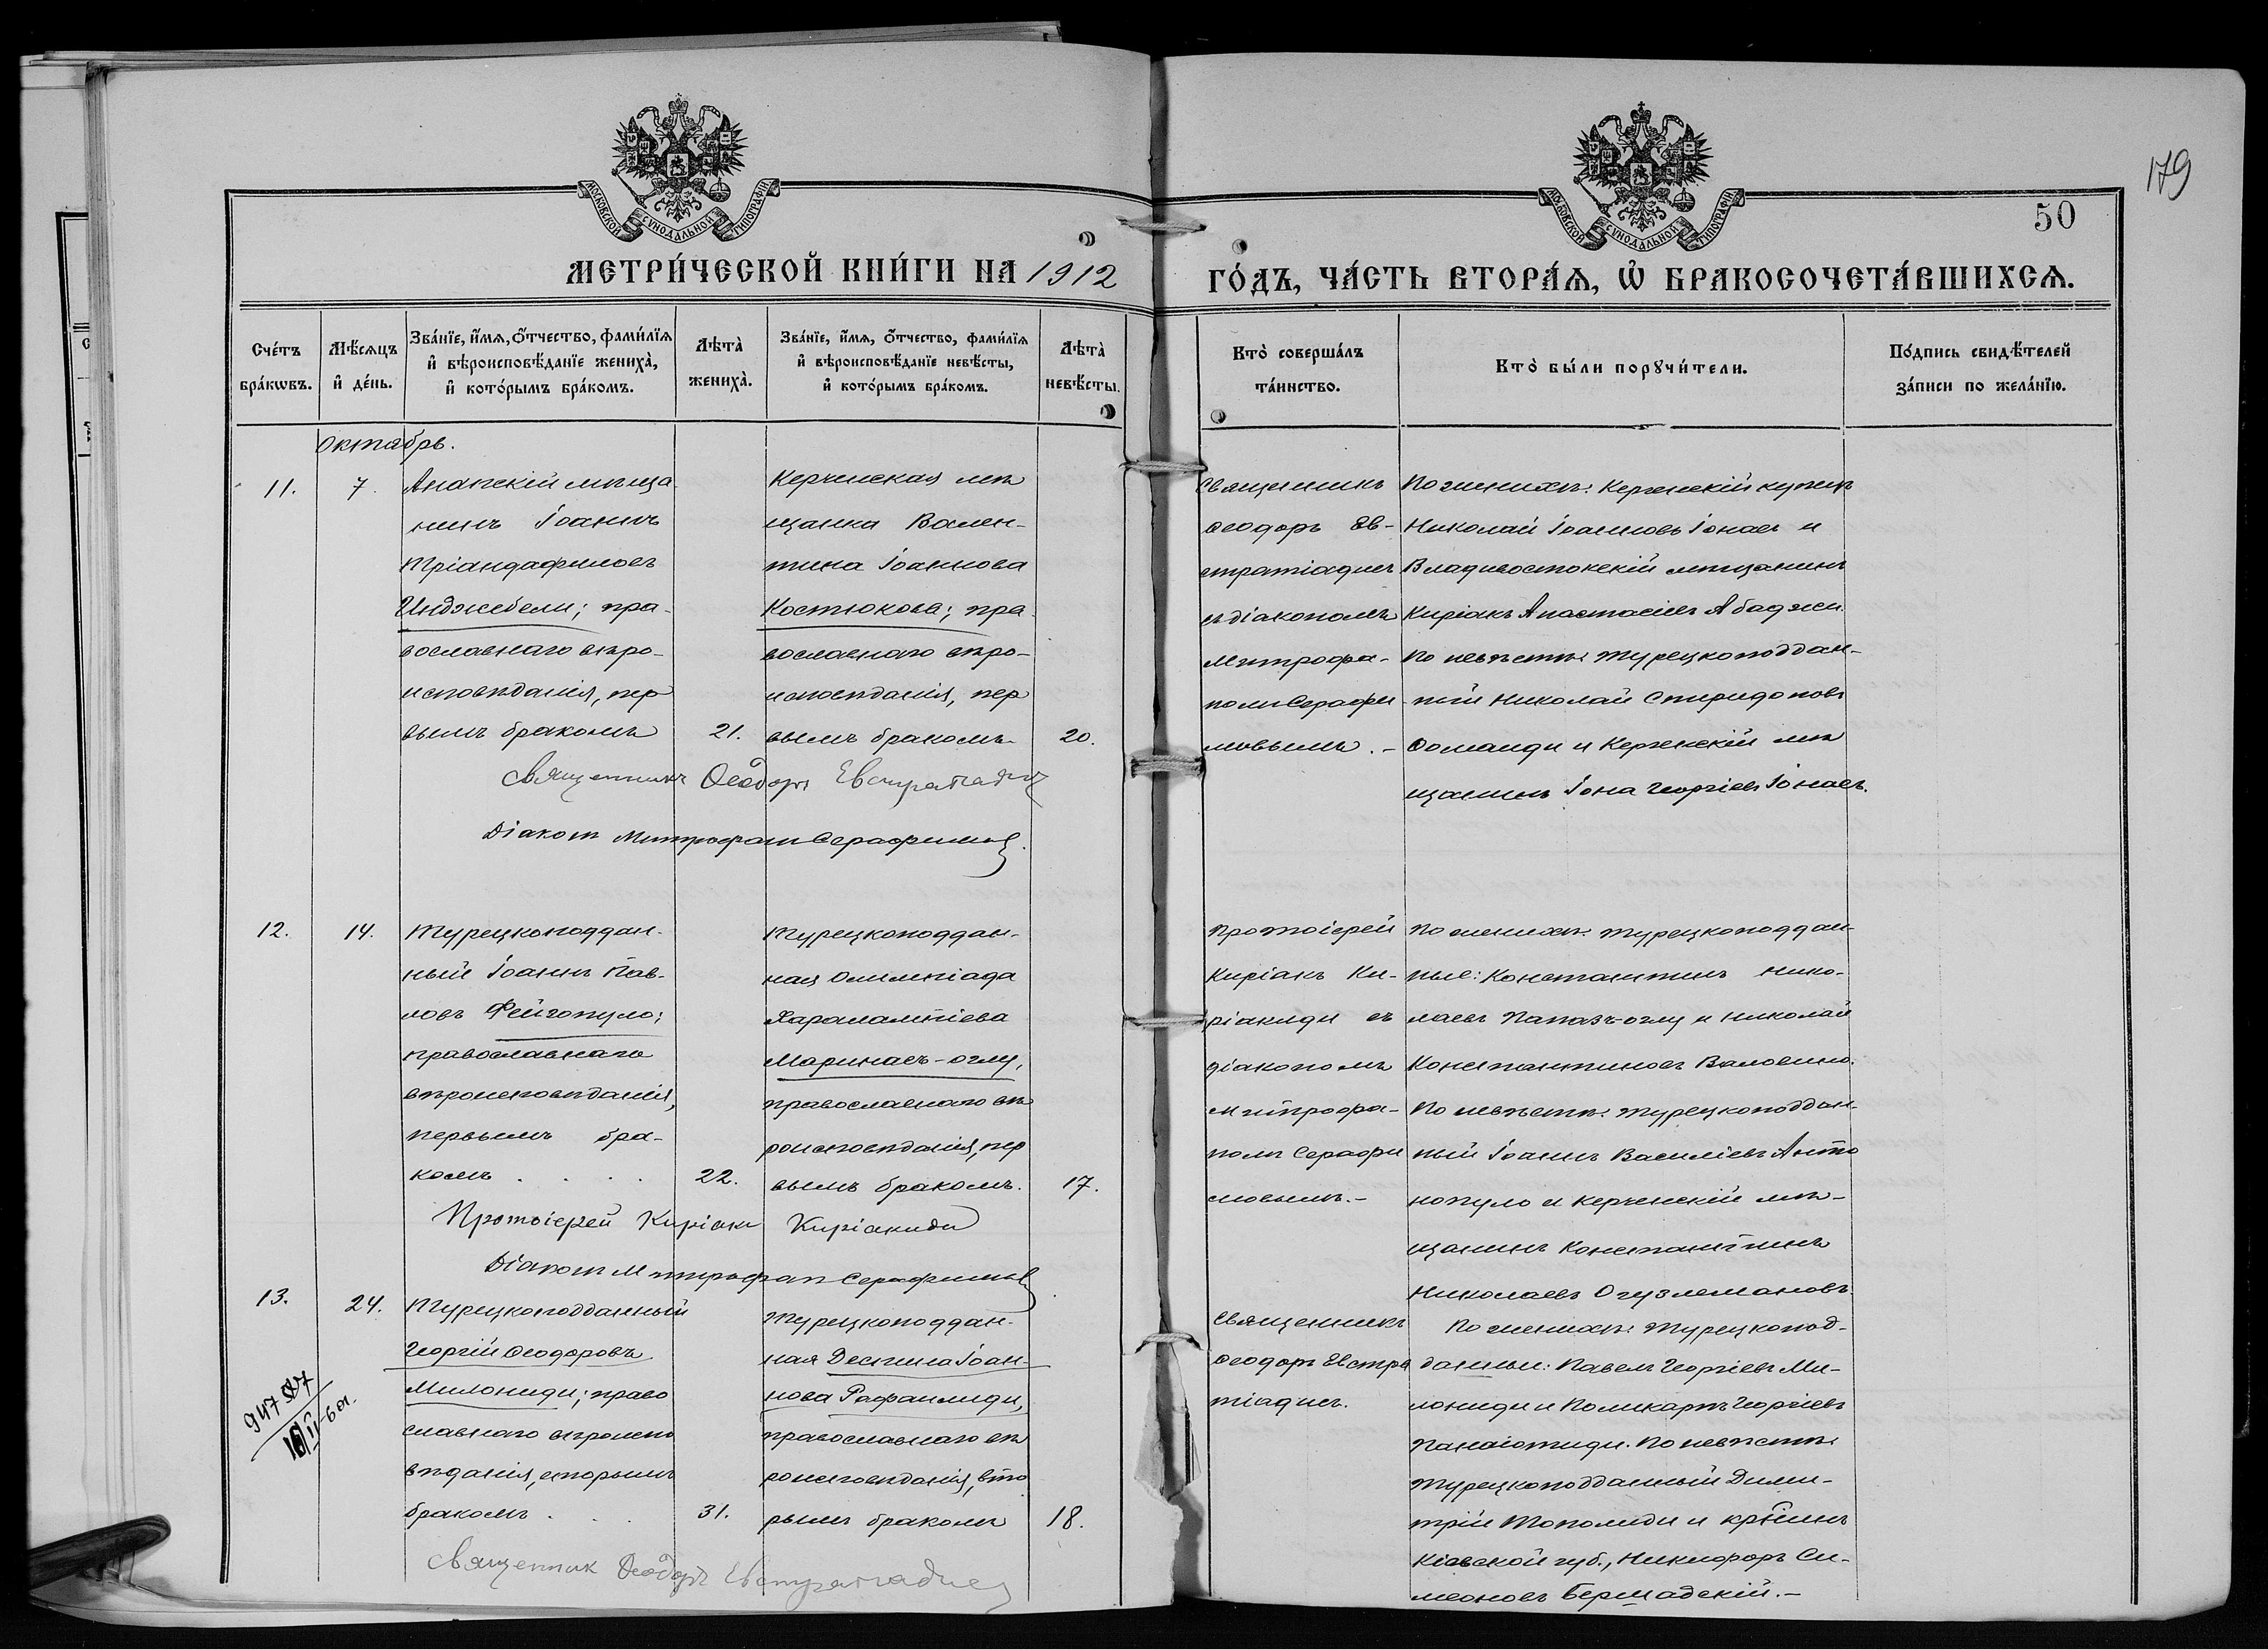 179
50
МОСКОВСКОЙ СУНОДАЛЬНОЙ ТИПОГРАФІИ
МОСКОВСКОЙ СУНОДАЛЬНОЙ ТИПОГРАФІИ
МЕТРИ́ЧЕСКОЙ КНИ́ГИ НА 1912 ГО́ДЪ, ЧА́СТЬ ВТОРА́Ѧ, Ѡ҆ БРАКОСОЧЕТА́ВШИХСѦ.
Сче́тъ бра́кѡвъ.
Мѣ́сяцъ и҆ де́нь.
Зва́нїе, и҆́мѧ, ѻ҆́тчество, фами́лїѧ
и҆ вѣроисповѣ́данїе жениха̀,
и҆ кото́рымъ бра́комъ.
Лѣта̀ жениха̀.
Зва́нїе, и҆́мѧ, ѻ҆́тчество, фами́лїѧ
и҆ вѣроисповѣ́данїе невѣ́сты,
и҆ кото́рымъ бра́комъ.
Лѣта̀ невѣ́сты.
Кто̀ соверша́лъ та́инство.
Кто̀ бы́ли порꙋчи́тели.
По́дпись свидѣ́телей за́писи по жела́нїю.
Октябрь.
11.
7.
Анапскій мѣща
нинъ Іоаннъ
Тріандафиловъ
Инджебели; пра-
вославнаго вѣро-
исповѣданія, пер
вымъ бракомъ
21.
Керченская мѣ
щанка Вален-
тина Іоаннова
Костюкова; пра
вославнаго вѣро-
исповѣданія, пер
вымъ бракомъ
20.
Священникъ
Ѳеодоръ Ев-
стратіадисъ
съ діакономъ
Митрофа-
номъ Серафи
мовымъ. -
По женихѣ: Керченскій купецъ
Николай Іоанновъ Іонаев и
Владивостокскій мѣщанинъ
Киріакъ Анастасіевъ Абаджи.
По невѣстѣ: турецкоподдан-
ный Николай Спиридоновъ
Ѳоманди и Керченскій мѣ
щанинъ Іона Георгіевъ Іонаевъ.
Священникъ Ѳеодоръ Евстратіадисъ
Діаконъ Митрофанъ Серафимовъ.
12.
14.
Турецкоподдан-
ный Іоаннъ Пав-
ловъ Фейгопуло;
православнаго
вѣроисповѣданія,
первымъ бра-
комъ . . . .
22.
Турецкоподдан-
ная Олимпіада
Харалампіева
Маринасъ-оглу,
православнаго вѣ
роисповѣданія, пер
вымъ бракомъ.
17.
Протоіерей
Киріакъ Ки-
ріакиди съ
діакономъ
Митрофа-
номъ Серафи
мовымъ. -
По женихѣ: турецкоподдан-
ные: Константинъ Нико-
лаевъ Папазъ-оглу и Николай
Константиновъ Валовино.
По невѣстѣ: турецкоподдан-
ный Іоаннъ Василіевъ Анто
нопуло и Керченскій мѣ-
щанинъ Константинъ
Николаевъ Огузлемановъ.
Протоіерей Киріакъ Киріакиди
Діаконъ Митрофанъ Серафимовъ.
13.
24.
Турецкоподданный
Георгій Ѳеодоровъ
Милониди; право
славнаго вѣроиспо
вѣданія, вторымъ
бракомъ . . .
31.
Турецкоподдан-
ная Деспина Іоан-
нова Рафаилиди,
православнаго вѣ
роисповѣданія, вто
рымъ бракомъ
18.
Священникъ
Ѳеодоръ Евстра
тіадисъ.
По женихѣ: турецкопод-
данные: Павелъ Георгіевъ Ми-
лониди и Поликарпъ Георгіевъ
Панаіотиди. По невѣстѣ:
турецкоподданный Дими-
трій Тополиди и кр-нинъ
Кіевской губ., Никифоръ Си-
меоновъ Бершадскій. -
Священник Ѳеодоръ Евстратіадисъ